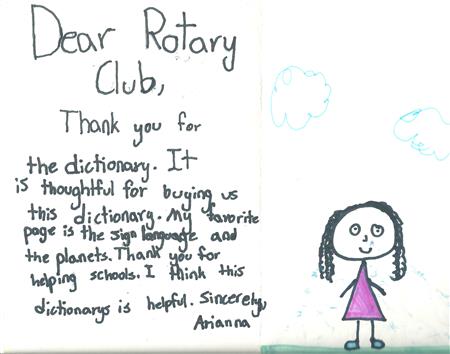 Dear Rotary
Club,
Thank you for
the dictionary. It
is thoughtful for buying us
this dictionary. My favorite
page is the sign language and
the planets. Thank you for
helping schools. I think this
dictionarys is helpful. Sincerely,
Arianna